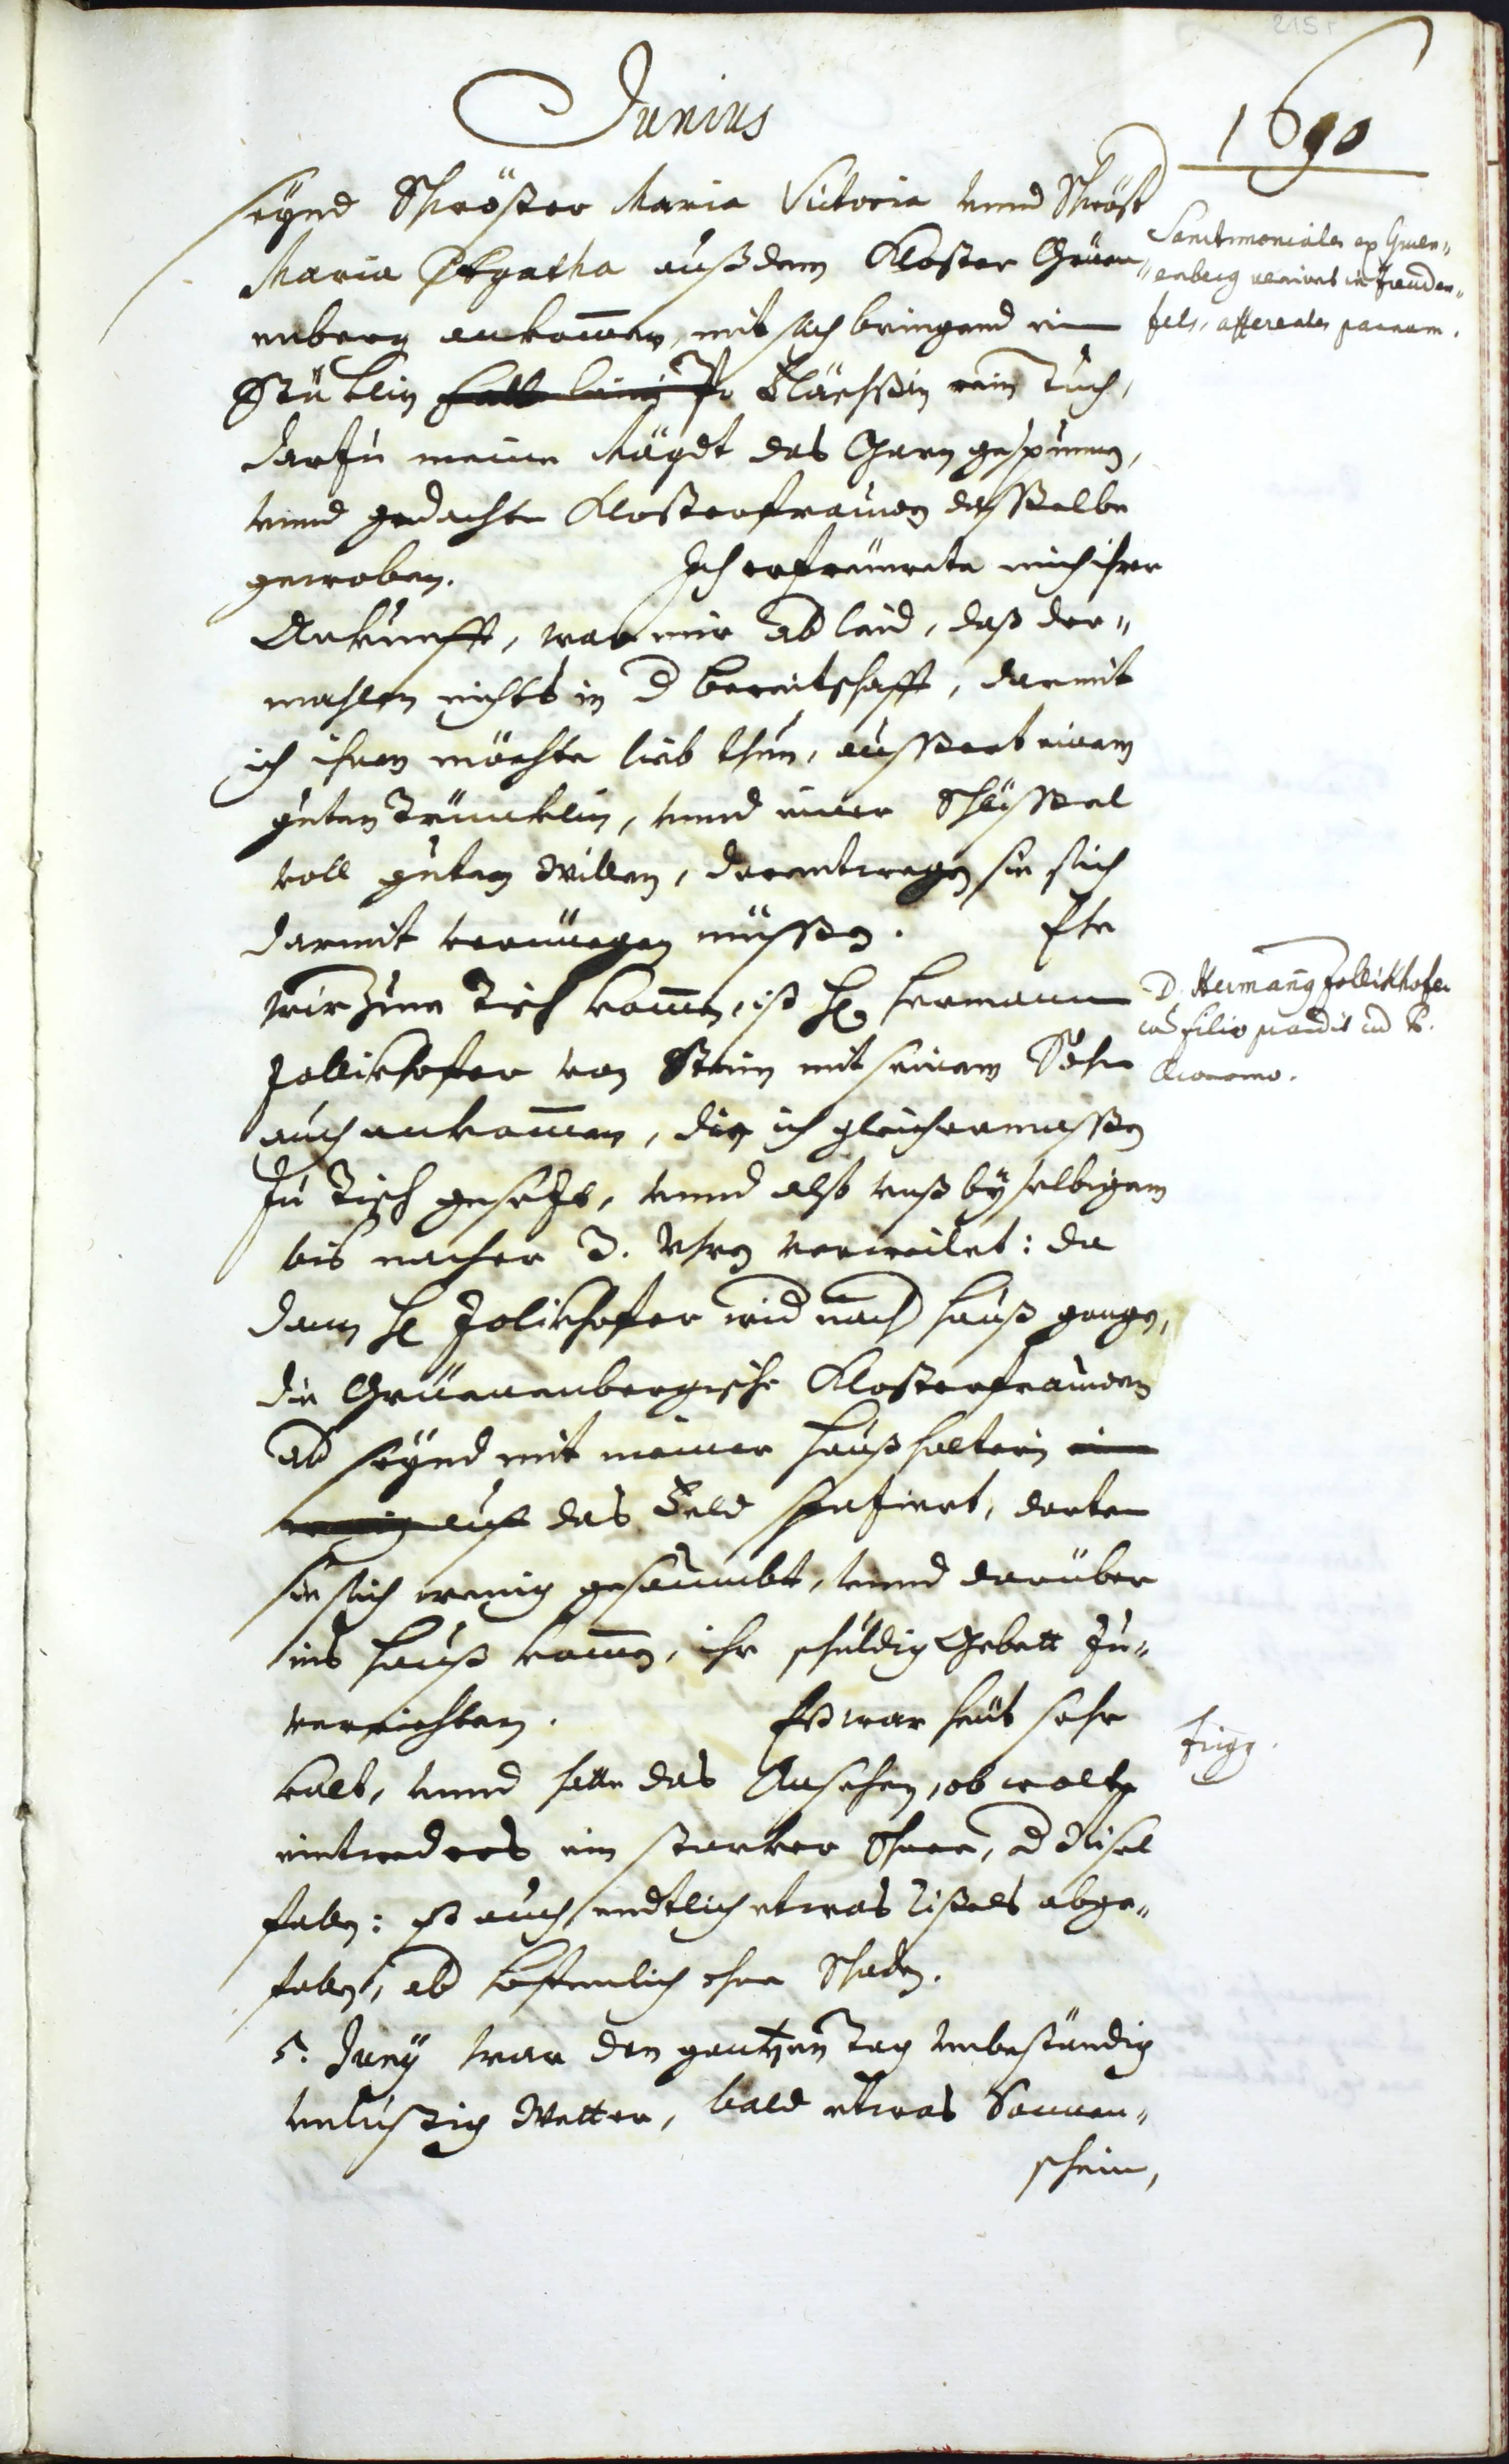 215r
Junius
1690
seynd Schwöster Maria Victoria unnd Schwöst
Maria Agatha außdem Closter Grüen„
enberg ankommen, mit sich bringend ein
Stüklin halb leini Flächßin rein Tuch,
darzu meine Mägdt das Garn gespunnen,
unnd gedachte Closterfrauwen dasselbe
gewoben. Ich erfreuwete mich ihrer
Ankunfft, war mir ab laid, daß der„
mahlen nichts in d bereitschafft, darmit
ich ihnen möchte lieb thun, aussert einem
guten Trüncklin, unnd einer Schüssel
voll guten Willen, derentwegen sie sich
darmit vernüegen müssen. Ehe
wir zum Tisch kommen, ist H. Hermann
Zollikhofer von Stein mit seinem Sohn
auch ankommen, die ich gleichermassen
zu Tisch gesetzt, unnd also unß by selbigem
bis nacher 3. Uhren verweilet: da
dann H. Zolikhofer wid nach hauß gangen,
die Grüenenbergische Closterfrauwen
ab seynd mit meiner haußhalterin ein
wenig auf das Feld spatziert, dorten
sie sich wenig gesaumbt, unnd darüber
ins hauß kommen, ihr schuldig Gebett zu„
verrichten. Es war heut sehr
kalt, unnd hatte das Ansehen, ob wolte
eintweders ein starker Schnee, d Risel
fallen: ist auch endtlich etwas Risels abge„
fallen, ab hoffenlich ohne Schaden.
5. Juny war den gantzen Tag unbeständig
unlustig Wetter, bald etwas Sonnen„
schein,
Sanctimoniales ex Gruen„
enberg veniunt in Freuden„
fels, afferentes pannum.
D. Hermann Zollikhofer
cum filio prandit
Oeconomo.
Frigg.